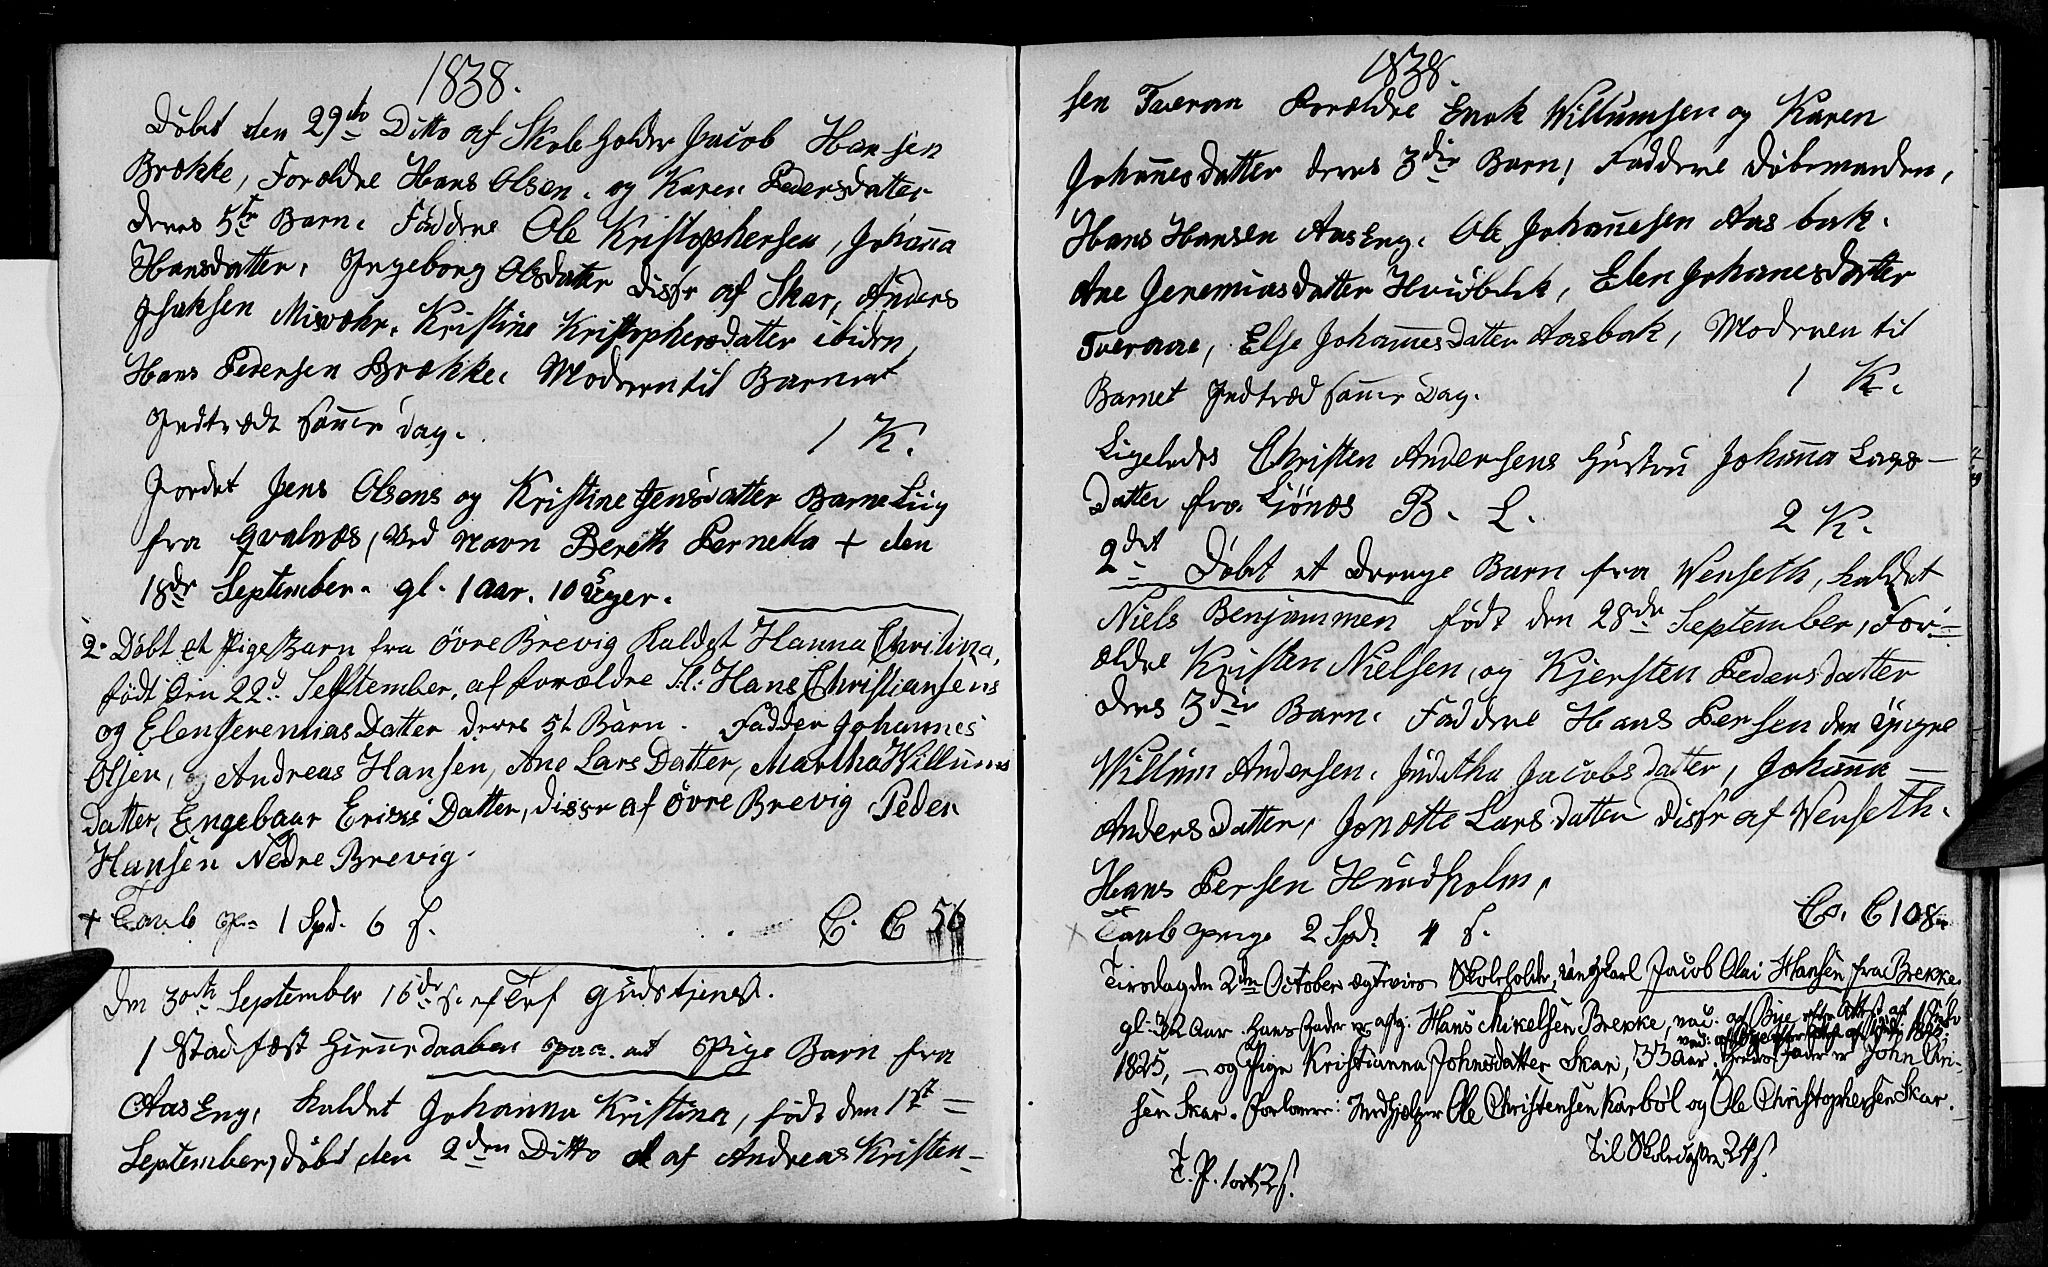 1838.
Døbt den 29de Ditto af Skoleholder Jacob Hansen
Brække, Forældre Hans Olsen. og Karen Pedersdatter
deres 5te Barn. Faddere Ole Kristophersen, Johanna
Hansdatter, Ingeborg Olsdatter disse af Skar, Anders
Isaksen Misvær. Kristine Kristophersdatter ibiden,
Hans Pedersen Brække. Moderen til Barnet
Indtrædt samme dag.
1 K.
Jordet Jens Olsens og Kristine Jensdatter Barne Liig
fra Qvalnæs, ved Navn Bereth Pernella + den
18de September. gl. 1 aar. 10 Uger.
2. Døbt et Pige Barn fra Øvre Brevig kaldet Hanna Christina,
født den 22d September, af forældre Sl: Hans Christiansens
og Elen Jeremias Datter deres 5t Barn. Fadder Johannes
Olsen, og Andreas Hansen, Ane Lars Datter, Martha Willums
datter, Engebaar Erics Datter, disse af Øvre Brevig Peder
Hansen Nedre Brevig.
+ Tavle p. 1 Spd. 6 s. C. C 56
Den 30te September 16de s. ef Tref gudstjenest.
1 Stadfæst Hiemmedaaben paa et Pige Barn fra
Aas Eng, kaldet Johanna Kristina, født den 1st
September, døbt den 2den Ditto af Andreas Kristen-
1838.
sen Tveraa Forældre Enok Willumsen og Karen
Johannesdatter deres 3die Barn, Faddere Døbemanden,
Hans Hansen Aas Eng. Ole Johannesen Aas bak.
Ane Jeremiasdatter, Elen Johanesdatter
Tveraae, Else Johannesdatter Aasbak, Moderen til
Barnet Indtræd samme Dag. 1 K.
Ligeledes Christen Andersens Hustru Johanna Lars-
datter fra Ljønes B. L. 2 K.
2det Døbt et Drenge Barn fra Wenseth, kaldet
Niels Benjammen født den 28de September, For-
ældre Kristen Nielsen, og Kjersten Pedersdatter
deres 3die Barn. Faddere Hans Persen den Yngre
Willum Andersen. Judithe Jacobsdatter, Johanna
Andersdatter, Jonette Larsdatter disse af Wenseth.
Hans Persen Hundholm,
Co. C 108
x Tavle penge 2 Spd. 4 s.
Tirsdag den 2den October ægtevies Skoleholder, Ungkarl Jacob Olai Hansen fra Brekke
gl. 32 Aar. Hans Fader er afg: Hans Mikelsen Brekke, vac. af Bye efter Attest af
1825, og Pige Kristianna Johnsdatter Skar, 33 Aar, hendes Fader er John Ari-
sen Skar. Forlovere: Medhjelper Ole Christensen Karbøl og Ole Christophersen Skar.
Til Skolecassen 24 s.
T. P. 1 ort 2 s.